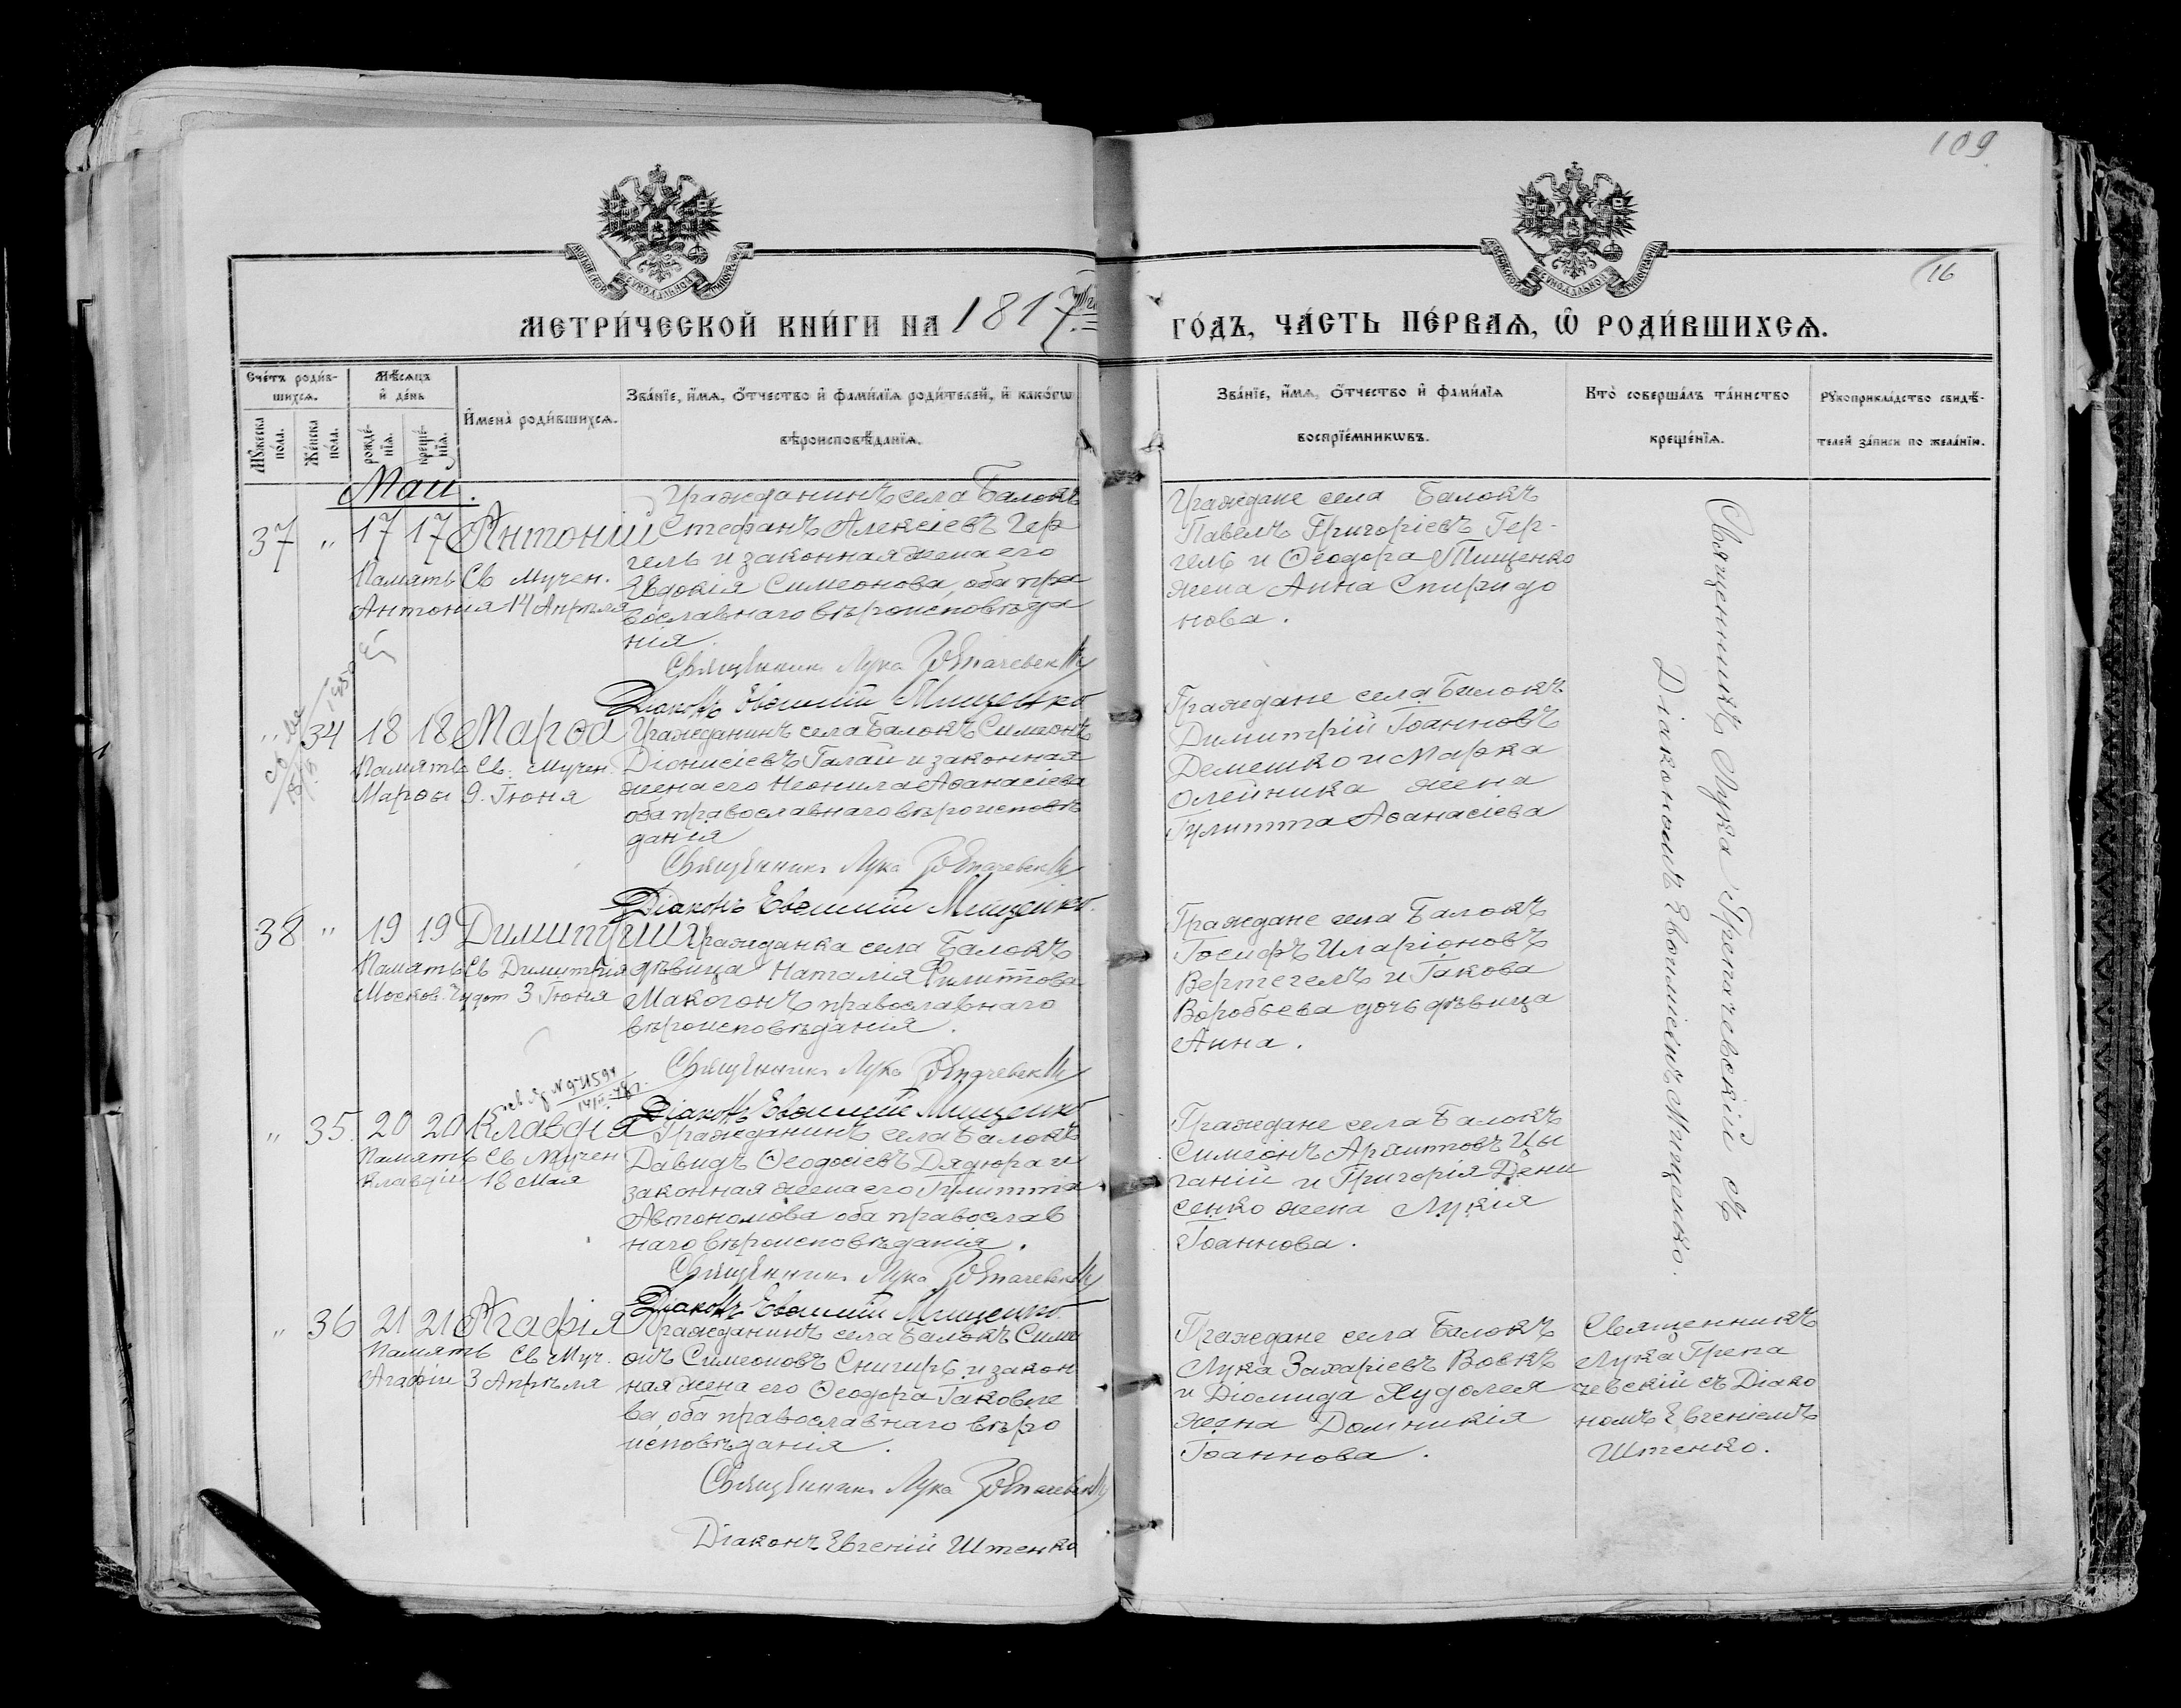 109
16
МЕТРИ́ЧЕСКОЙ КНИ́ГИ НА 1817
ГО́ДЪ, ЧА́СТЬ ПЕ́РВАѦ, Ѡ҆ РОДИ́ВШИХСѦ.
Сче́тъ роди́в-
шихсѧ.
Мѣ́сѧцъ
и҆ де́нь
И҆мена̀ роди́вшихсѧ.
Зва́нїе, и҆́мѧ, ѻ҆́тчество и҆ фами́лїѧ роди́телей, и҆ како́гѡ
вѣроисповѣ́данїѧ.
Мꙋ́жеска
по́ла.
Же́нска
по́ла.
рожде́-
нїѧ.
креще́-
нїѧ.
Зва́нїе, и҆́мѧ, ѻ҆́тчество и҆ фами́лїѧ
воспрїе́мникѡвъ.
Кто̀ соверша́лъ та́инство
креще́нїѧ.
Рꙋкоприкла́дство свидѣ́-
телей за́писи по жела́нїю.
Май.
37 " 17 17 Антоній
Память Св. Мучен.
Антонія 14 Апрѣля
Гражданинъ села Балокъ
Стефанъ Алексіевъ Гер
гель и законная жена его
Евдокія Симеонова, оба пра
вославнаго вѣроисповѣда
нія.
Священникъ Лука
Діаконъ Евѳимій Мищенко
Граждане села Балокъ
Павелъ Григоріевъ Гер-
гель и Ѳеодора Тищенко
жена Анна Спиридо
нова.
" 34 18 18 Марѳа
Память Св. Мучен.
Марѳы 9. Іюня
Гражданинъ села Балокъ Симеонъ
Діонисіевъ Галай и законная
жена его Неонила Аѳанасіева
оба православнаго вѣроисповѣ
данія
Священникъ Лука
Діаконъ Евѳимій Мищенко.
Граждане села Балокъ
Димитрій Іоанновъ
Демешко и Марка
Олейника жена
Іулитта Аѳанасіева
38 " 19 19 Димитрій
Память Св Димитрія
Москов. Чудот 3 Іюня
Гражданка села Балокъ
дѣвица Наталія Филиппова
Макогонъ православнаго
вѣроисповѣданія.
Священникъ Лука
Діаконъ Евѳимій Мищенко
Граждане села Балокъ
Іосифъ Иларіоновъ
Вертегелъ и Іакова
Воробьева дочь дѣвица
Анна.
" 35. 20 20 Клавдія
Память Св Мучен
Клавдіи 18 Мая
Гражданинъ села Балокъ
Давидъ Ѳеодосіевъ Дядюра и
законная жена его Іулитта
Автономова оба православ
наго вѣроисповѣданія.
Священникъ Лука
Діаконъ Евѳимій Мищенко
Граждане села Балокъ
Симеонъ Цы
ганій и Григорія Дени
сенко жена Лукія
Іоаннова.
" 36 21 21 Агафія
Память Св Муч.
Агафіи 3 Апрѣля
Гражданинъ села Балокъ Симе
онъ Симеоновъ Снигирь и закон
ная жена его Ѳеодора Іаковле
ва, оба православнаго вѣро
исповѣданія.
Священникъ Лука
Діаконъ Евгеній Штенко
Граждане села Балокъ
Лука Захаріевъ Вовкъ
и Діомида Худолея
жена Домникія
Іоаннова.
Священникъ Лука Грепачевскій съ
Діакономъ Евѳиміемъ Мищенко.
Священникъ
Лука Грепа
чевскій съ Діако
номъ Евгеніемъ
Штенко.